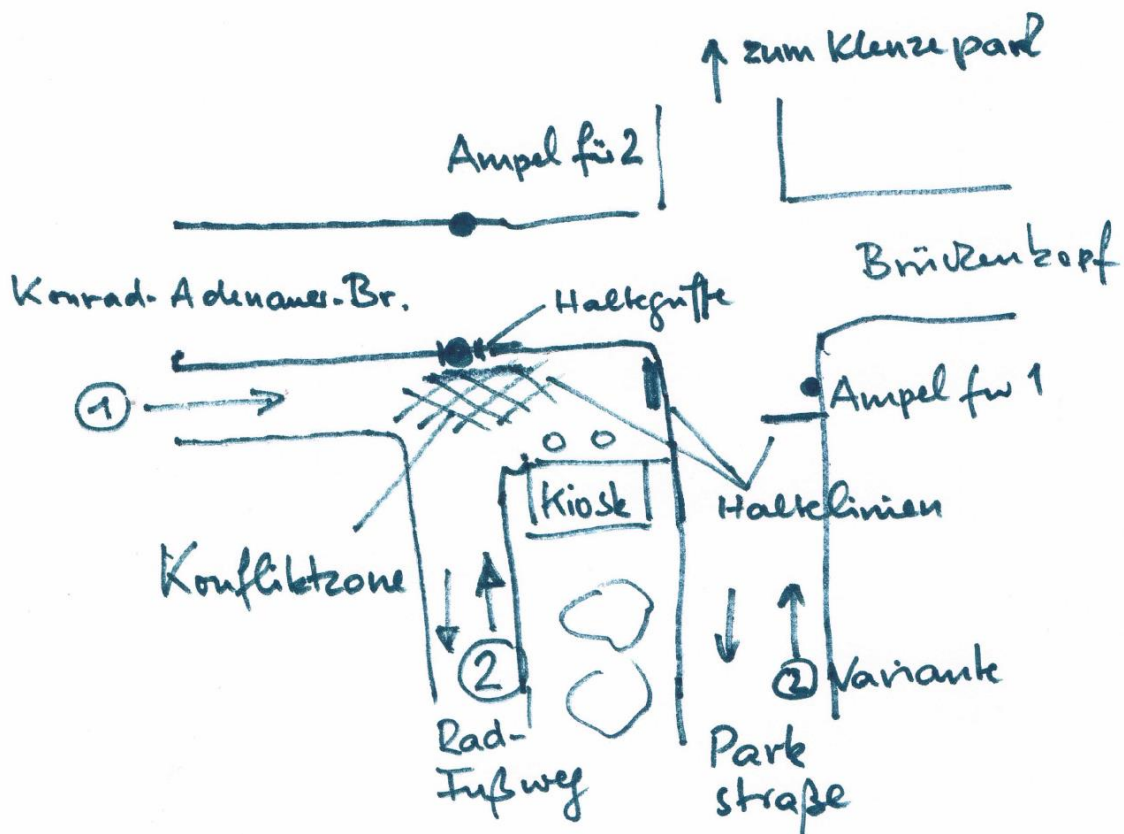 ↑ zum Klenzepark
Ampel für 2
Brückenkopf
Konrad-Adenauer-Br.
Haltegriffe
①
Ampel für 1
Kiosk
Haltelinien
Konfliktzone
②
② Variante
Rad-
Fußweg
Park
straße